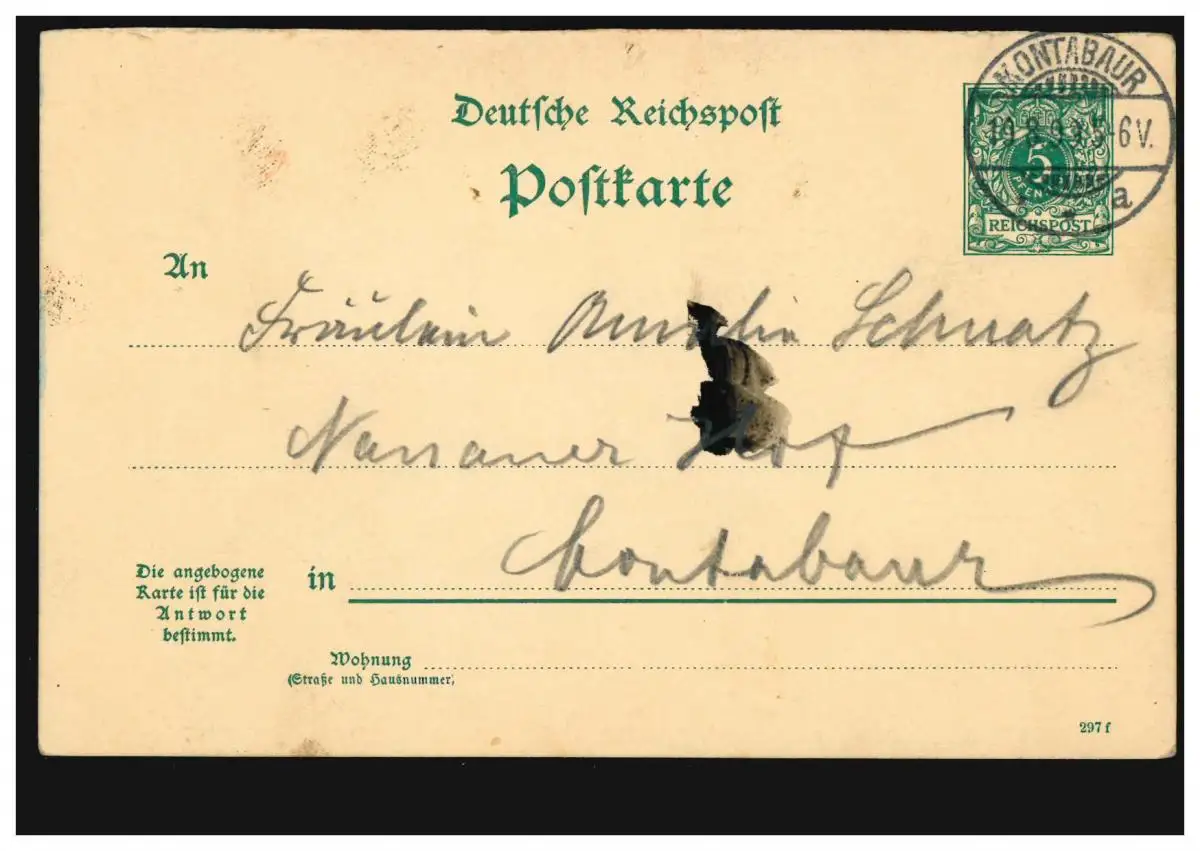 Deutsche Reichspost
Postkarte
MONTABAUR
19.8.99.5-6V.
a
5
PFENNIG
REICHSPOST
An
Fräulein Amalie Schnatz
Nassauer Hof
Montabaur
in
Die angebogene
Karte ist für die
Antwort
bestimmt.
Wohnung
(Straße und Hausnummer)
297 f